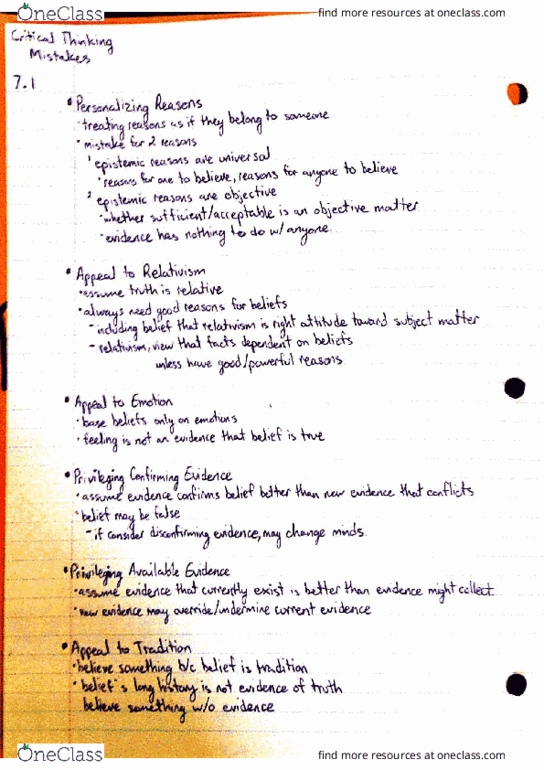 OneClass
find more resources at oneclass.com
Critical Thinking
Mistakes
7.1
• Personalizing Reasons
• treating reasons as if they belong to someone
• mistake for 2 reasons
1 epistemic reasons are universal
• reasons for one to believe, reasons for anyone to believe
2 epistemic reasons are objective
• whether sufficient/acceptable is an objective matter
• evidence has nothing to do w/ anyone
• Appeal to Relativism
• assume truth is relative
• always need good reasons for beliefs
- including belief that relativism is right attitude toward subject matter
- relativism, view that facts dependent on beliefs
unless have good/powerful reasons
• Appeal to Emotion
• base beliefs only on emotions
• feeling is not an evidence that belief is true
• Privileging Confirming Evidence
• assume evidence confirms belief better than new evidence that conflicts
• belief may be false
- if consider disconfirming evidence, may change minds
• Privileging Available Evidence
• assume evidence that currently exist is better than evidence might collect
• new evidence may override/undermine current evidence
• Appeal to Tradition
• believe something b/c belief is tradition
• belief's long history is not evidence of truth
believe something w/o evidence
OneClass
find more resources at oneclass.com